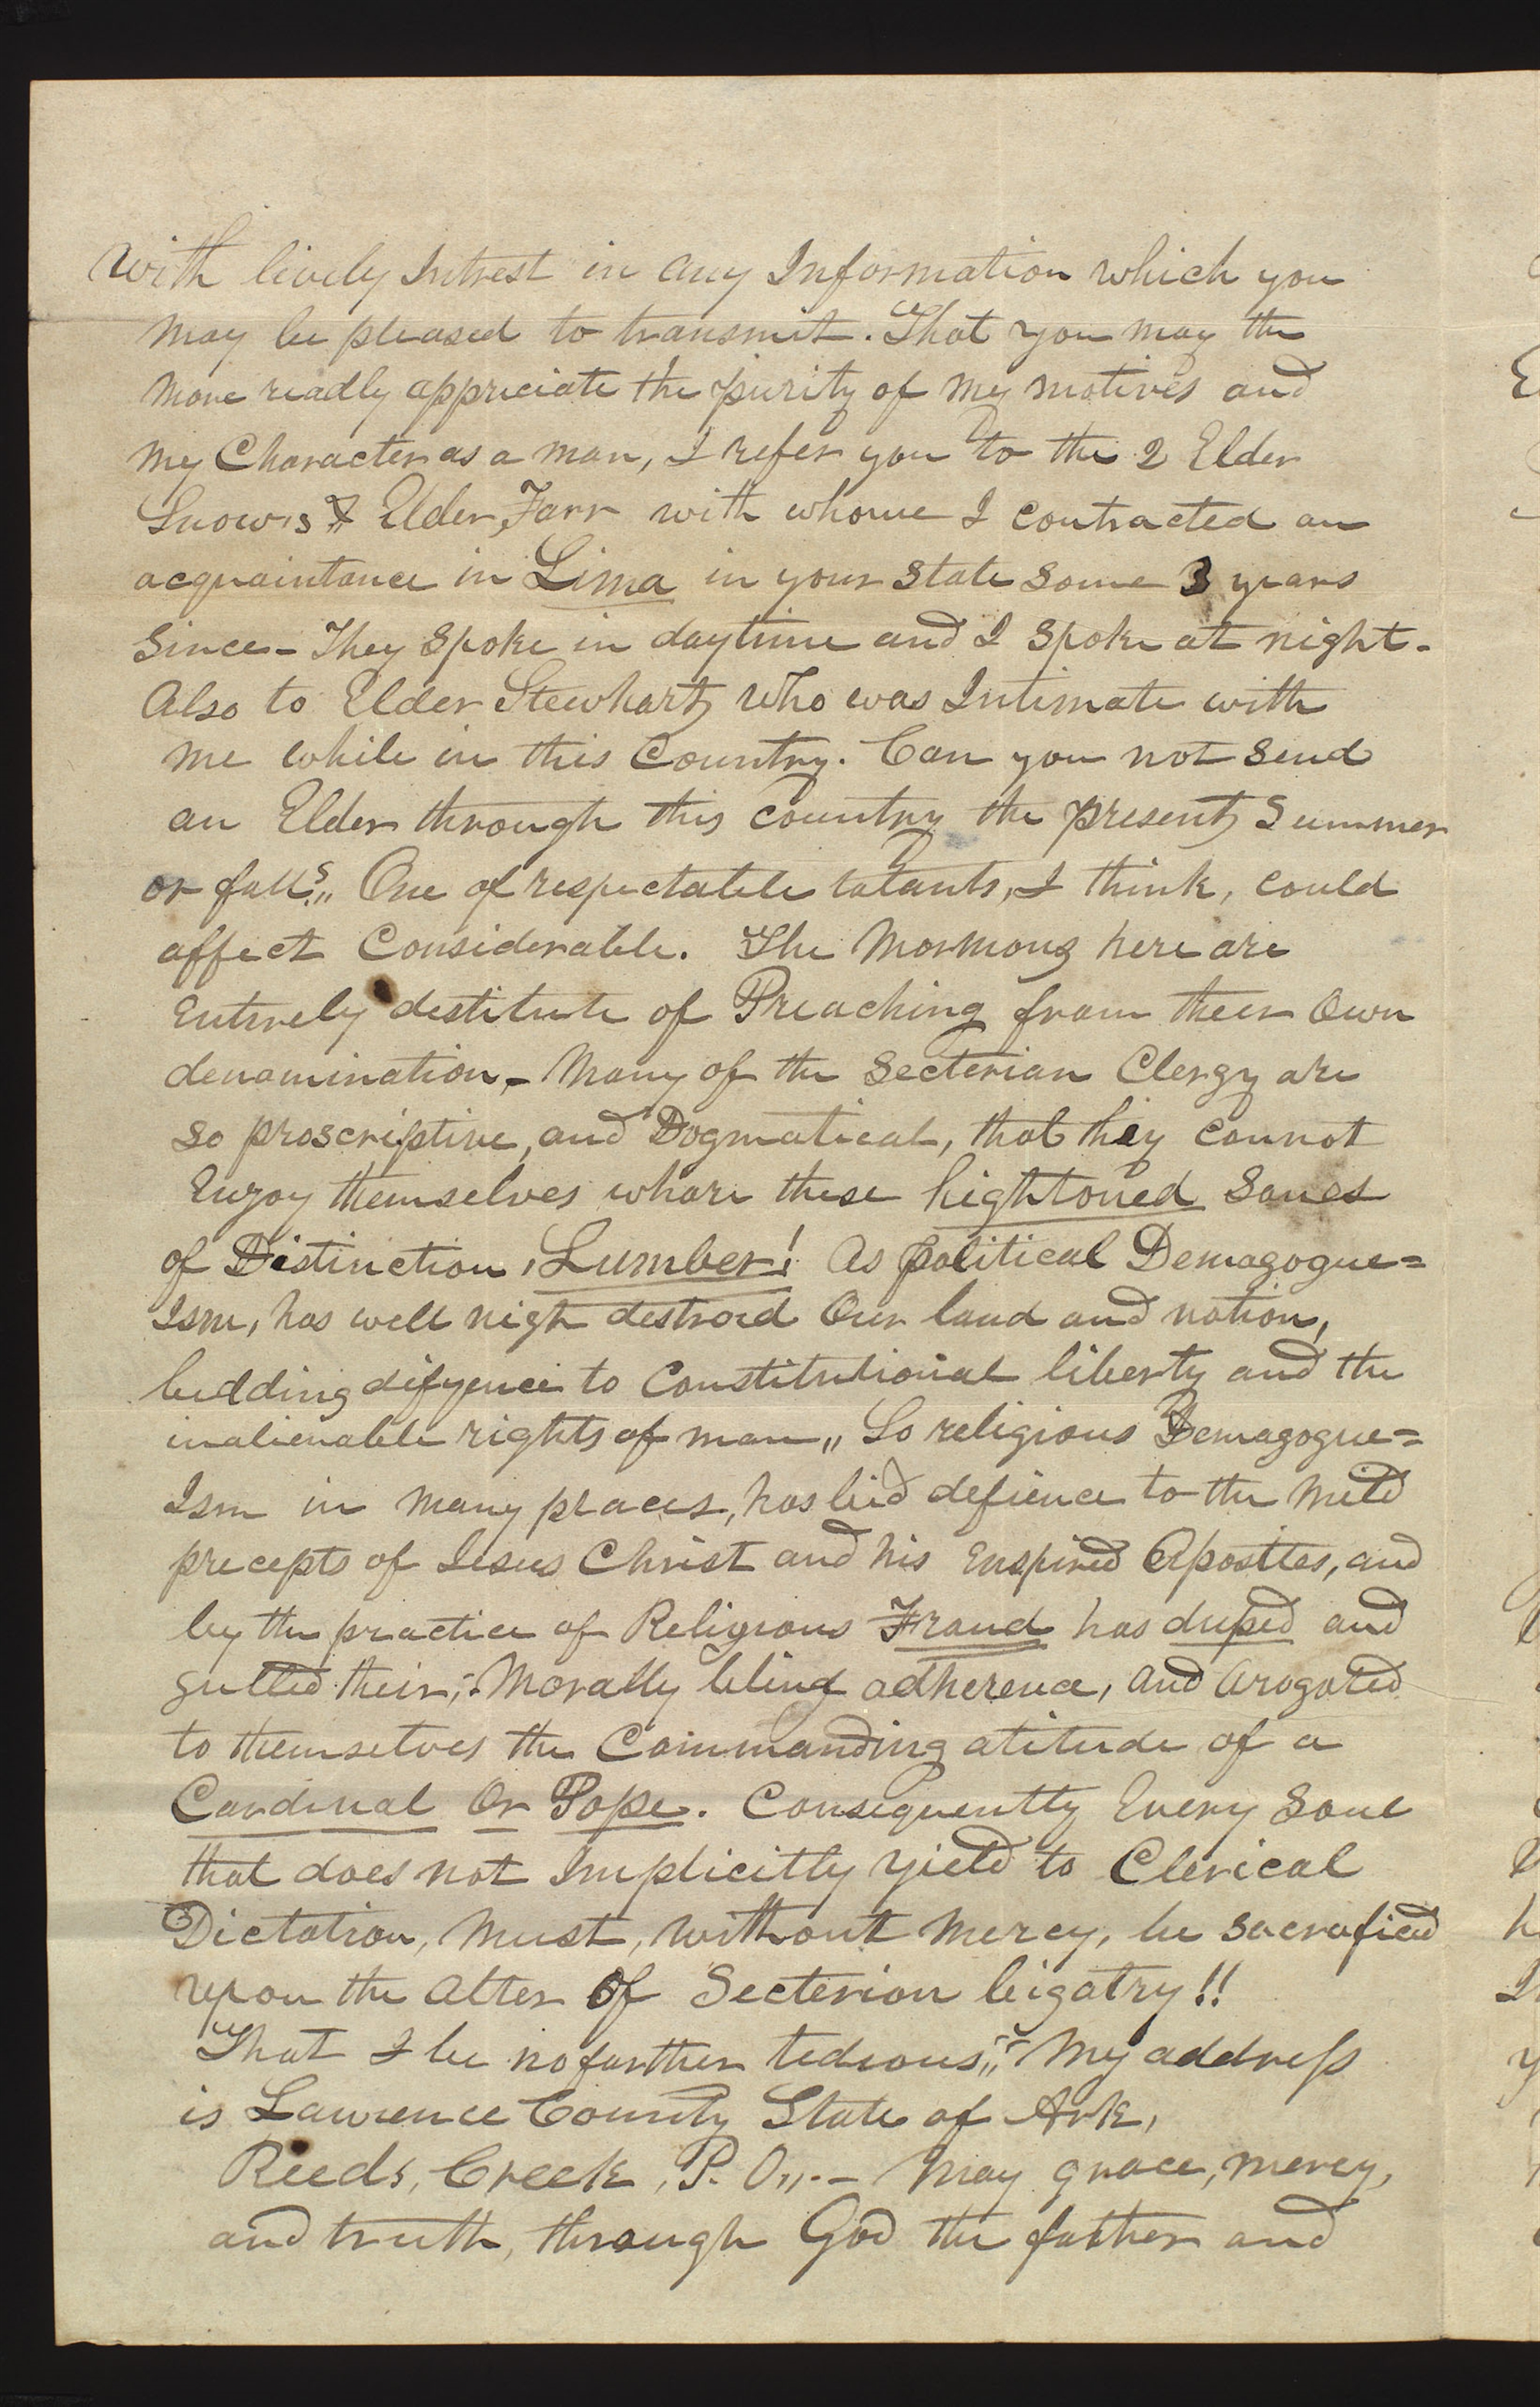 With lively Intrest in any Information which you
may be pleased to transmit. That you may the
more readly appreciate the purity of my motives and
my Character as a man, I refer you to the 2 Elder
Snow's & Elder Farr with whome I contracted an
acquaintance in Lima in your State some 3 years
Since - They Spoke in daytime and I Spoke at night -
Also to Elder Stewhart, who was Intimate with
me while in this Country. Can you not Send
an Elder through this country the present Summer
or falls,, One of respectable talants, I think, could
affect Considerable. The Mormons here are
Entirely destitute of Preaching from their Own
denomination, - Many of the Secterian Clergy are
So proscriptive, and Dogmatical, that they cannot
Enjoy themselves whare these hightoned Sones
of Distinction, Lumber! As political Demagogue=
Ism, has well nigh destroid Our land and nation,
bidding difyence to Constitutional liberty and the
inalienable rights of man,, So religious Demagogue=
Ism in many places, has bid defience to the Mild
precepts of Jesus Christ and his Enspired Apostles, and
by the practice of Religious Fraud has duped and
gulled their, Morally blind adherence, And Arogated
to themselves the Commanding atitude of a
Cardinal Or Pope. Consequently Every Soul
that does not Implicitly yield to Clerical
Dictation, Must, without Mercy, be Sacrafised
upon the Alter Of Secterion bigatry!!
That I be no farther tedious,, My address
is Lawrence County State of Ark,
Reeds, Creek, P. O,,. - May grace, mercy,
and truth, through God the father and